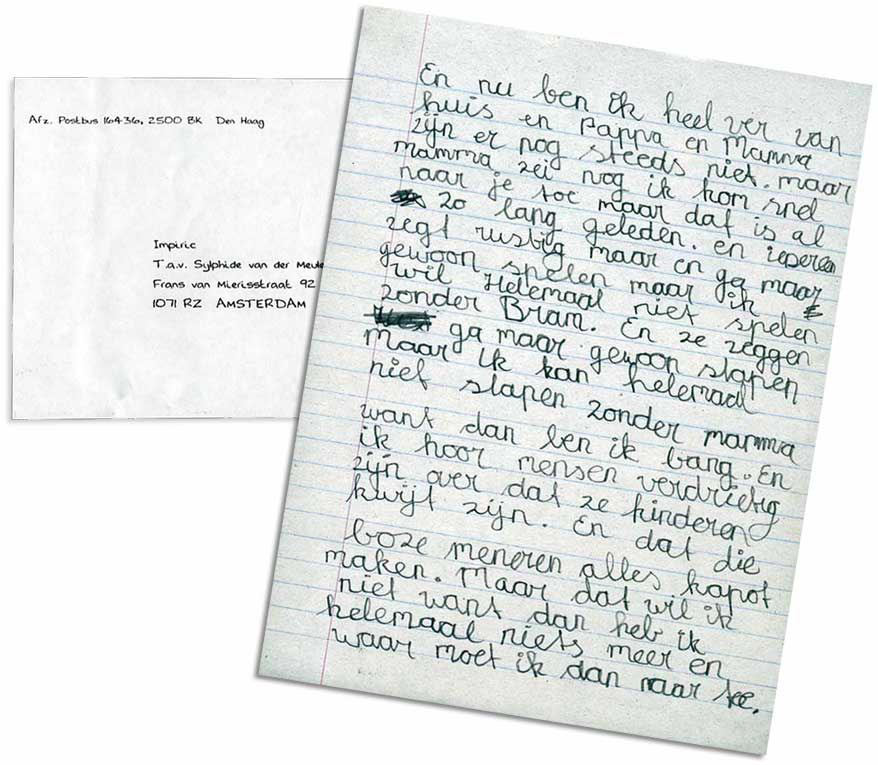 Afz. Postbus 16436, 2500 BK Den Haag
Impiric
T.a.v. Sylphide van der Meule
Frans van Mierisstraat 92
1071 RZ AMSTERDAM
En nu ben ik heel ver van
huis en pappa en Mamma
zijn er nog steeds niet. maar
mamma zei nog ik kom snel
naar je toe maar dat is al
zo lang geleden. en iedereen
zegt rustig maar en ga maar
gewoon spelen maar ik
wil Helemaal niet spelen
zonder Bram. En ze zeggen
ga maar gewoon slapen
Maar ik kan helemaal
niet slapen zonder mamma
want dan ben ik bang. En
ik hoor mensen verdrietig
zijn over dat ze kinderen
kwijt zijn. En dat die
boze meneren alles kapot
maken. Maar dat wil ik
niet want dan heb ik
helemaal niets meer en
waar moet ik dan naar toe.